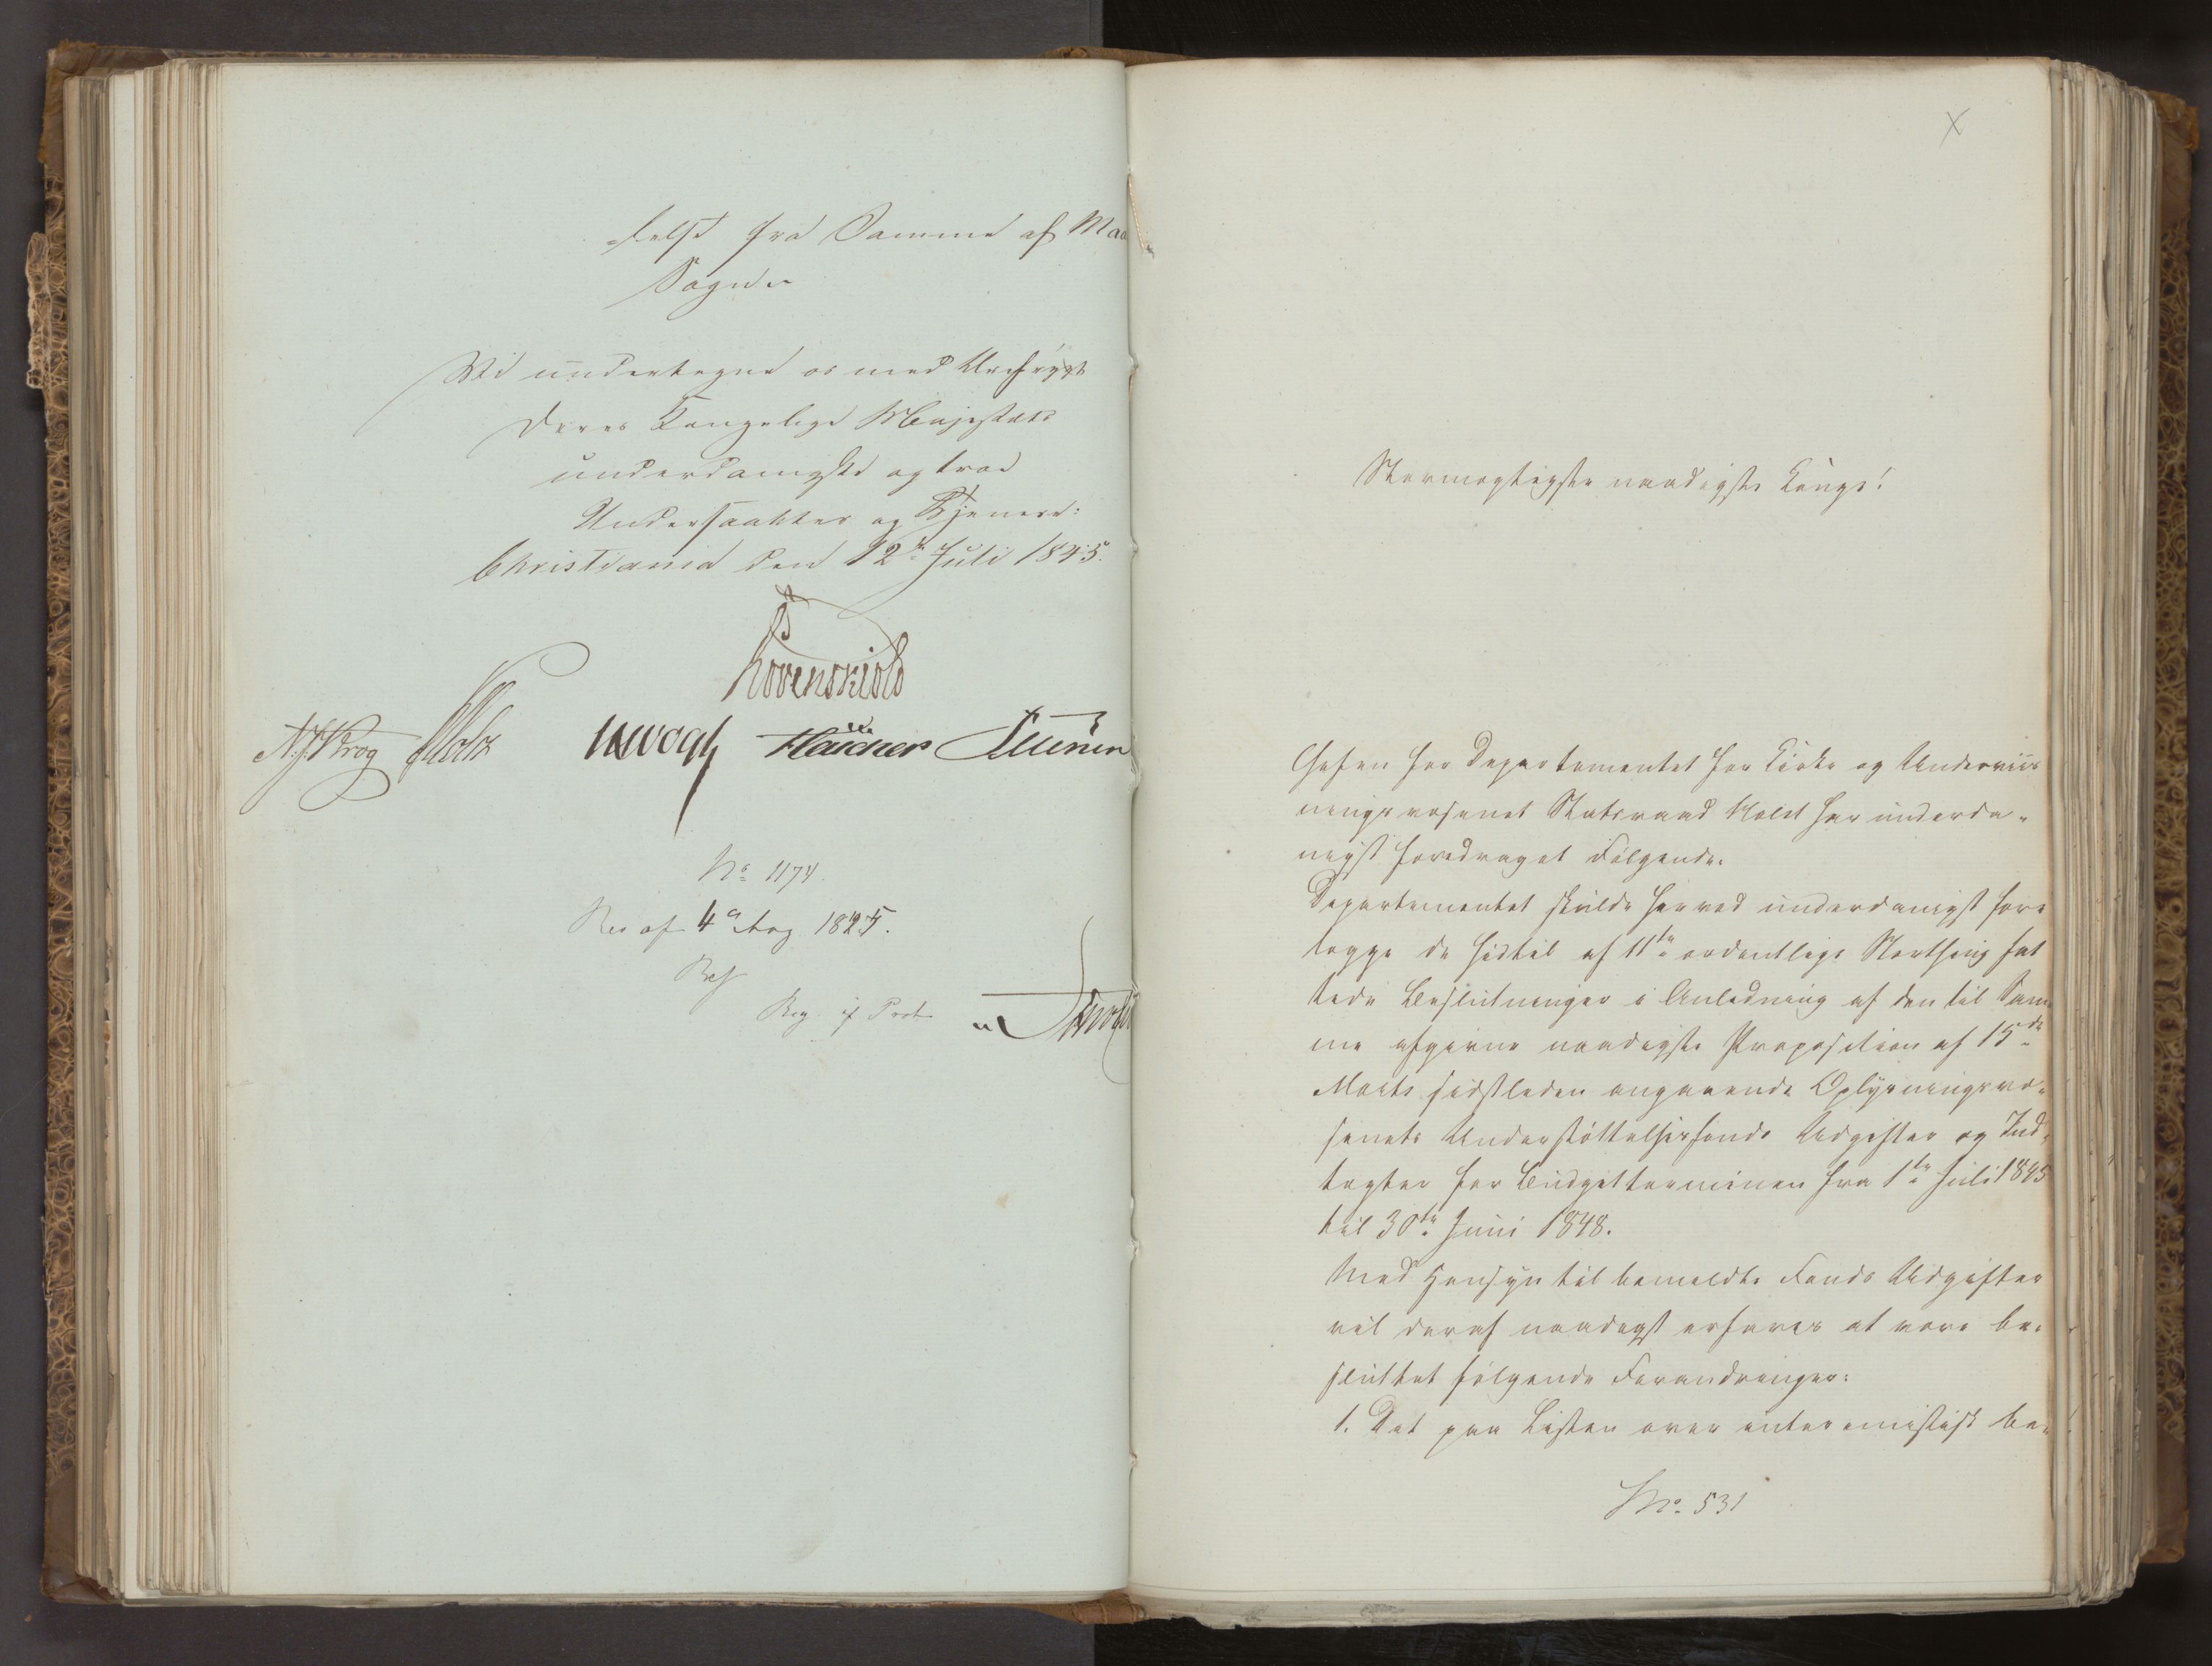 -felse fra Samme af Maa
Sogne.
Vi undertegne os med Ærefrygt
Deres Kongelige Majestæts
underdanigste og troe
Undersaatter og Tjenere:
Christiania den 12te Juli 1845.
Løvenskiold
N. J. Krog Holst JHVogt Hauchor
No 1174.
Res af 4de Aug 1845.
Ref
Reg. i Prot.
X
Stormægtigste naadigste Konge!
Chefen for Departementet for Kirke og Underviis
ningsvæsenet Statsraad Holst har underda-
nigst foredraget Følgende.
Departementet skulde herved underdanigst fore
lægge de hidtil af 11te ordentlige Storthing fat
tede Beslutninger i Anledning af den til Sam
me afgivne naadigste Proposition af 15de
Marts sidstleden angaaende Oplysningsvæ-
senets Understøttelsesfonds Udgifter og Ind-
tægter for Budgetterminen fra 1te Juli 1845
til 30te Juni 1848.
Med Hensyn til bemeldte Fonds Udgifter
vil deraf naadigst erfares at være be-
sluttet følgende Forandringer:
1. Det paa Listen over interimistisk be-
No. 531